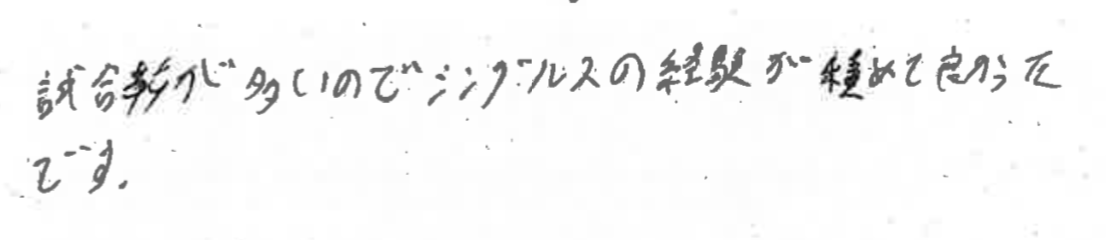 試合数が多いのでシングルスの経験が積めて良かった
です.